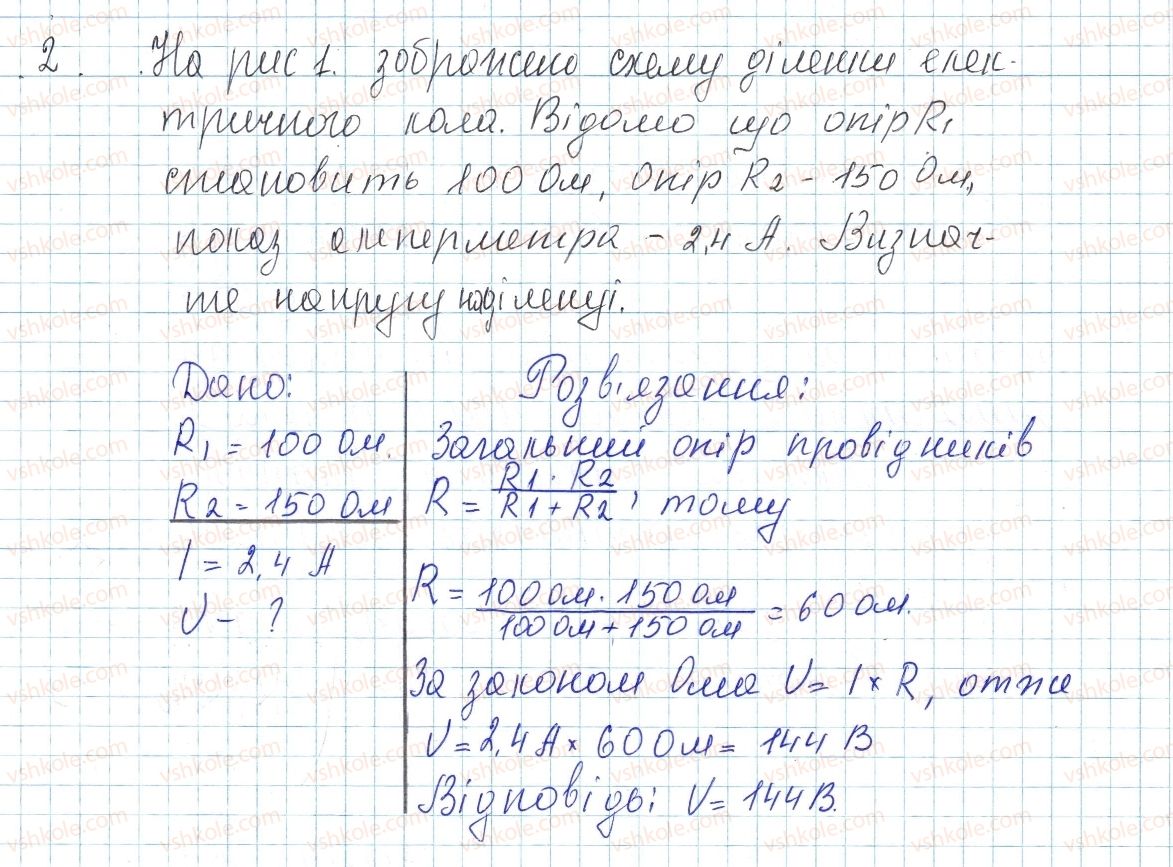 2. На рис 1. зображено схему ділення елек-
тричного кола. Відомо що опір R1
становить 100 Ом, опір R2 - 150 Ом,
показ амперметра - 2,4 А. Визнач-
те напругу на діленці.
Дано:
R1 = 100 Ом.
R2 = 150 Ом
I = 2,4 А
U - ?
Розв'язання:
Загальний опір провідників
R = R1 · R2 / R1 + R2, тому
R = 100 Ом · 150 Ом / 100 Ом + 150 Ом = 60 Ом.
За законом Ома U = I × R, отже
U = 2,4 А × 60 Ом = 144 В
Відповідь: U = 144 В.